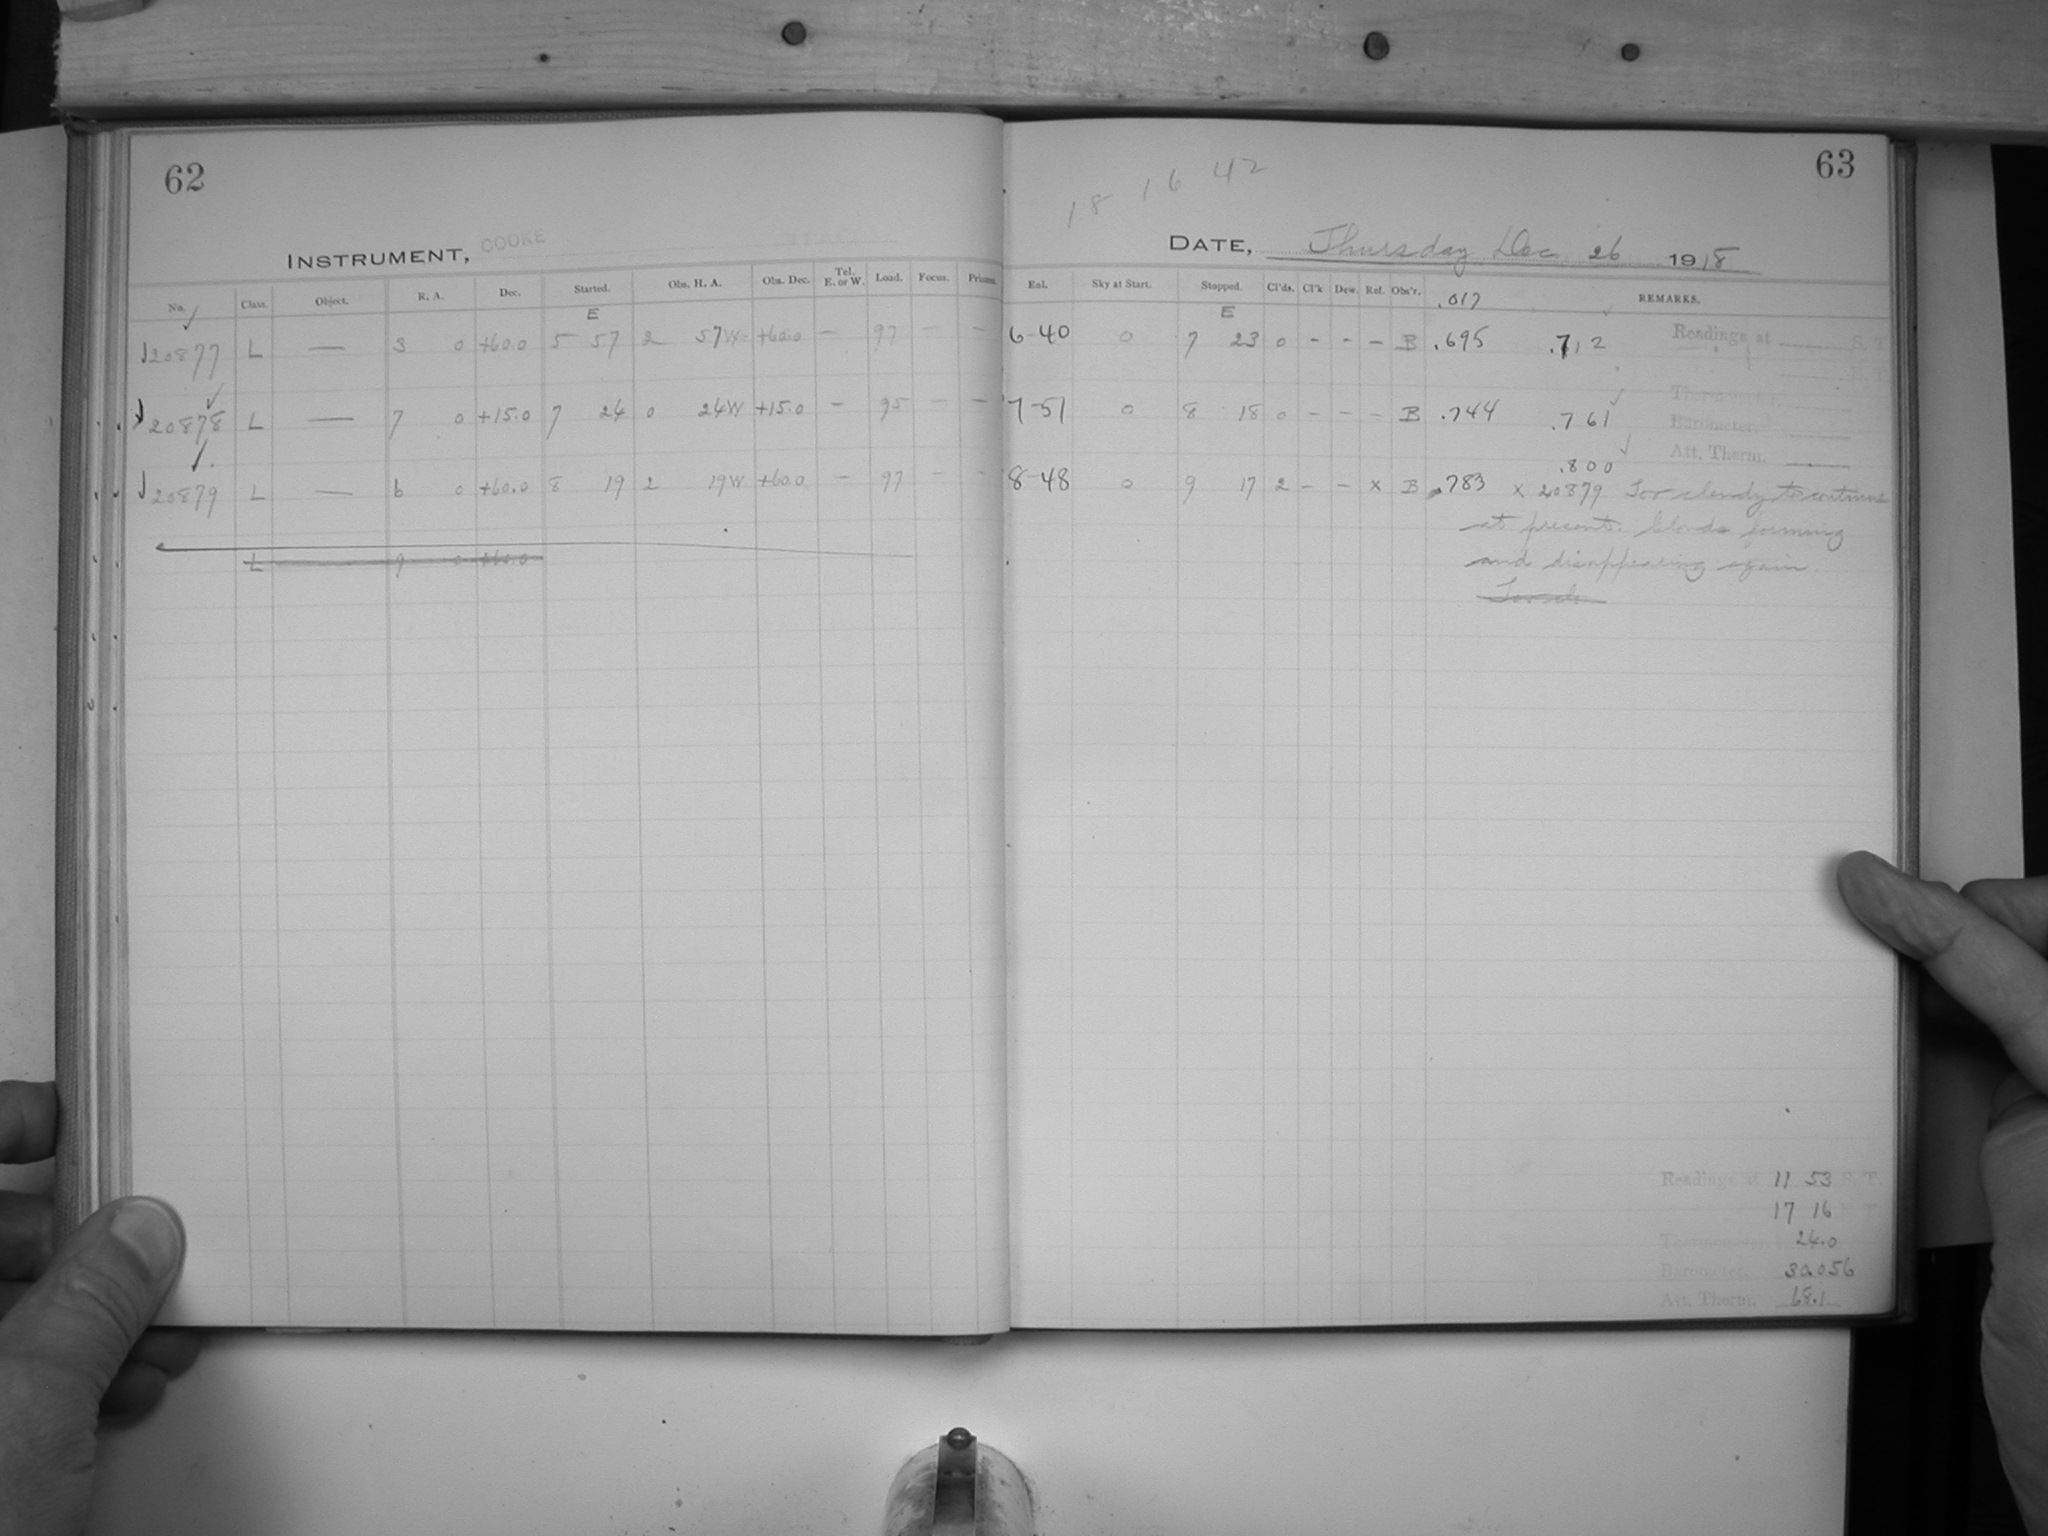 62
INSTRUMENT, COOKE
No. Class. Object. R. A. Dec. Started. Obs. H. A. Obs. Dec. Tel. E. or W. Load. Focus. Prisms.
E
20877 L — 3 0 +60.0 5 57 2 57W +60.0 — 97 — —
20878 L — 7 0 +15.0 7 24 0 24W +15.0 — 95 — —
20879 L — 6 0 +60.0 8 19 2 19W +60.0 — 97 — —
L 9 0 +60.0
63
18 16 42
DATE, Thursday Dec 26 1918
Eal. Sky at Start. Stopped. Cl'ds. Cl'k Dew. Ref. Obs'r. REMARKS.
.017
E
6-40 0 7 23 0 - - - B .695 .712
Readings at S. T.
7-51 0 8 18 0 - - - B .744 .761
Barometer.
Att. Therm.
.800
8-48 0 9 17 2 - - x B .783 x 20879 Too cloudy to continue
at present. Clouds forming
and disappearing again.
Readings at 11 53 S. T.
17 16
24.0
Barometer. 30.056
Att. Therm. 68.1